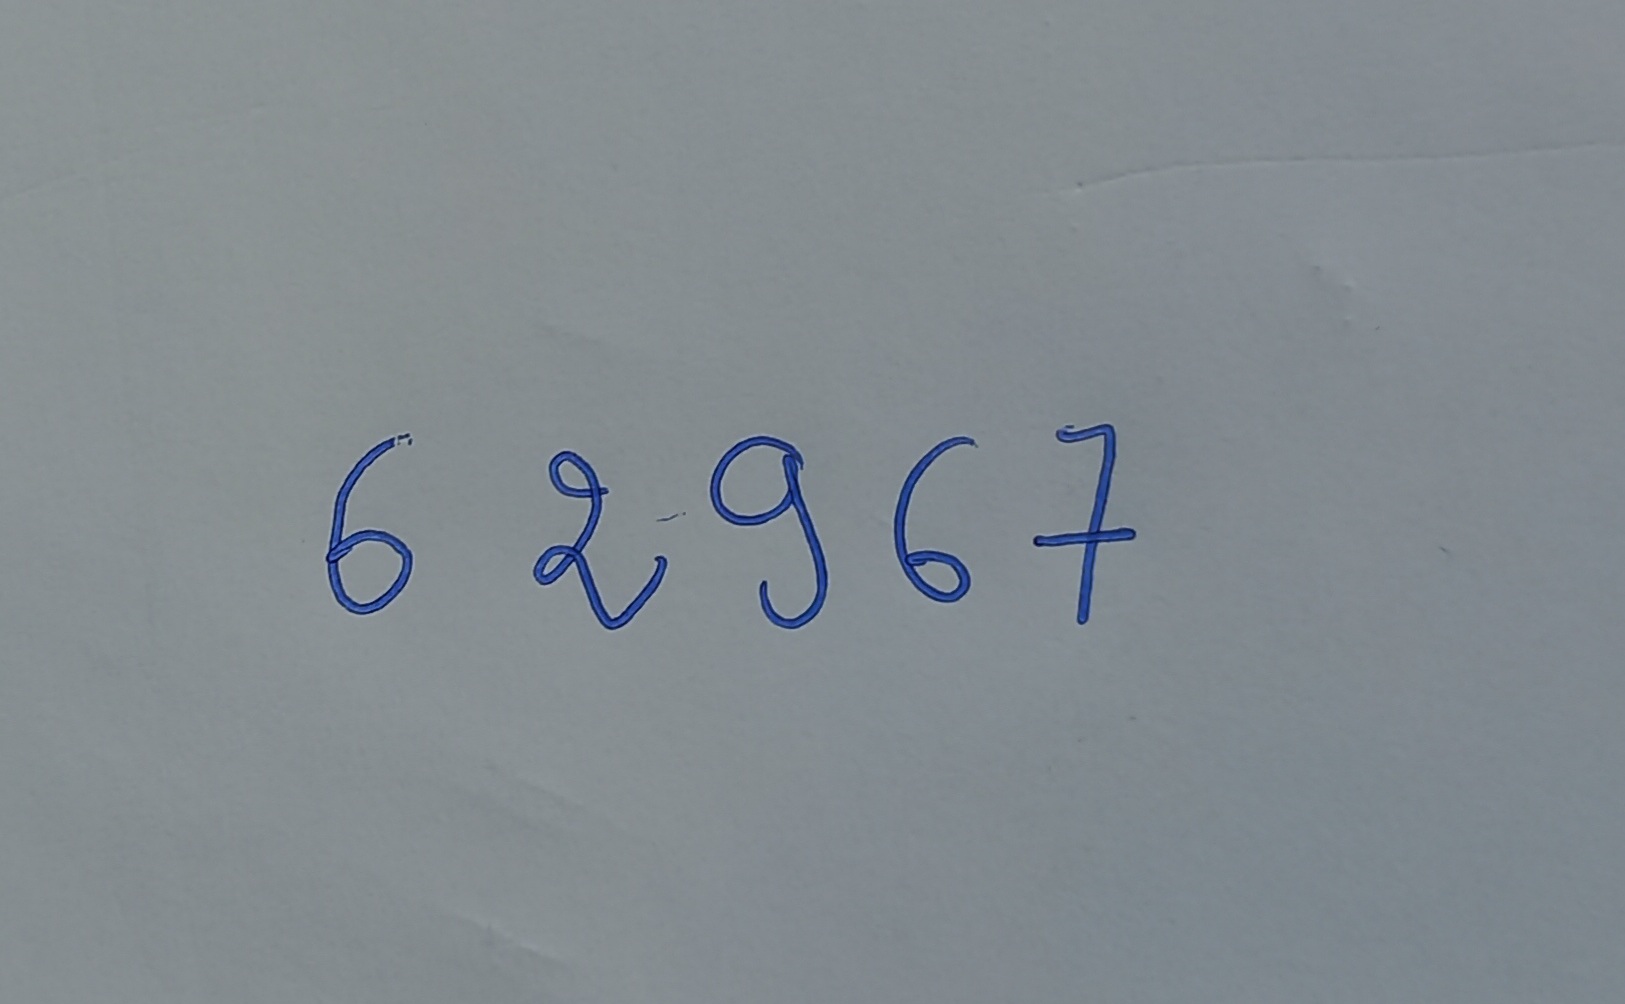 6 2 9 6 7